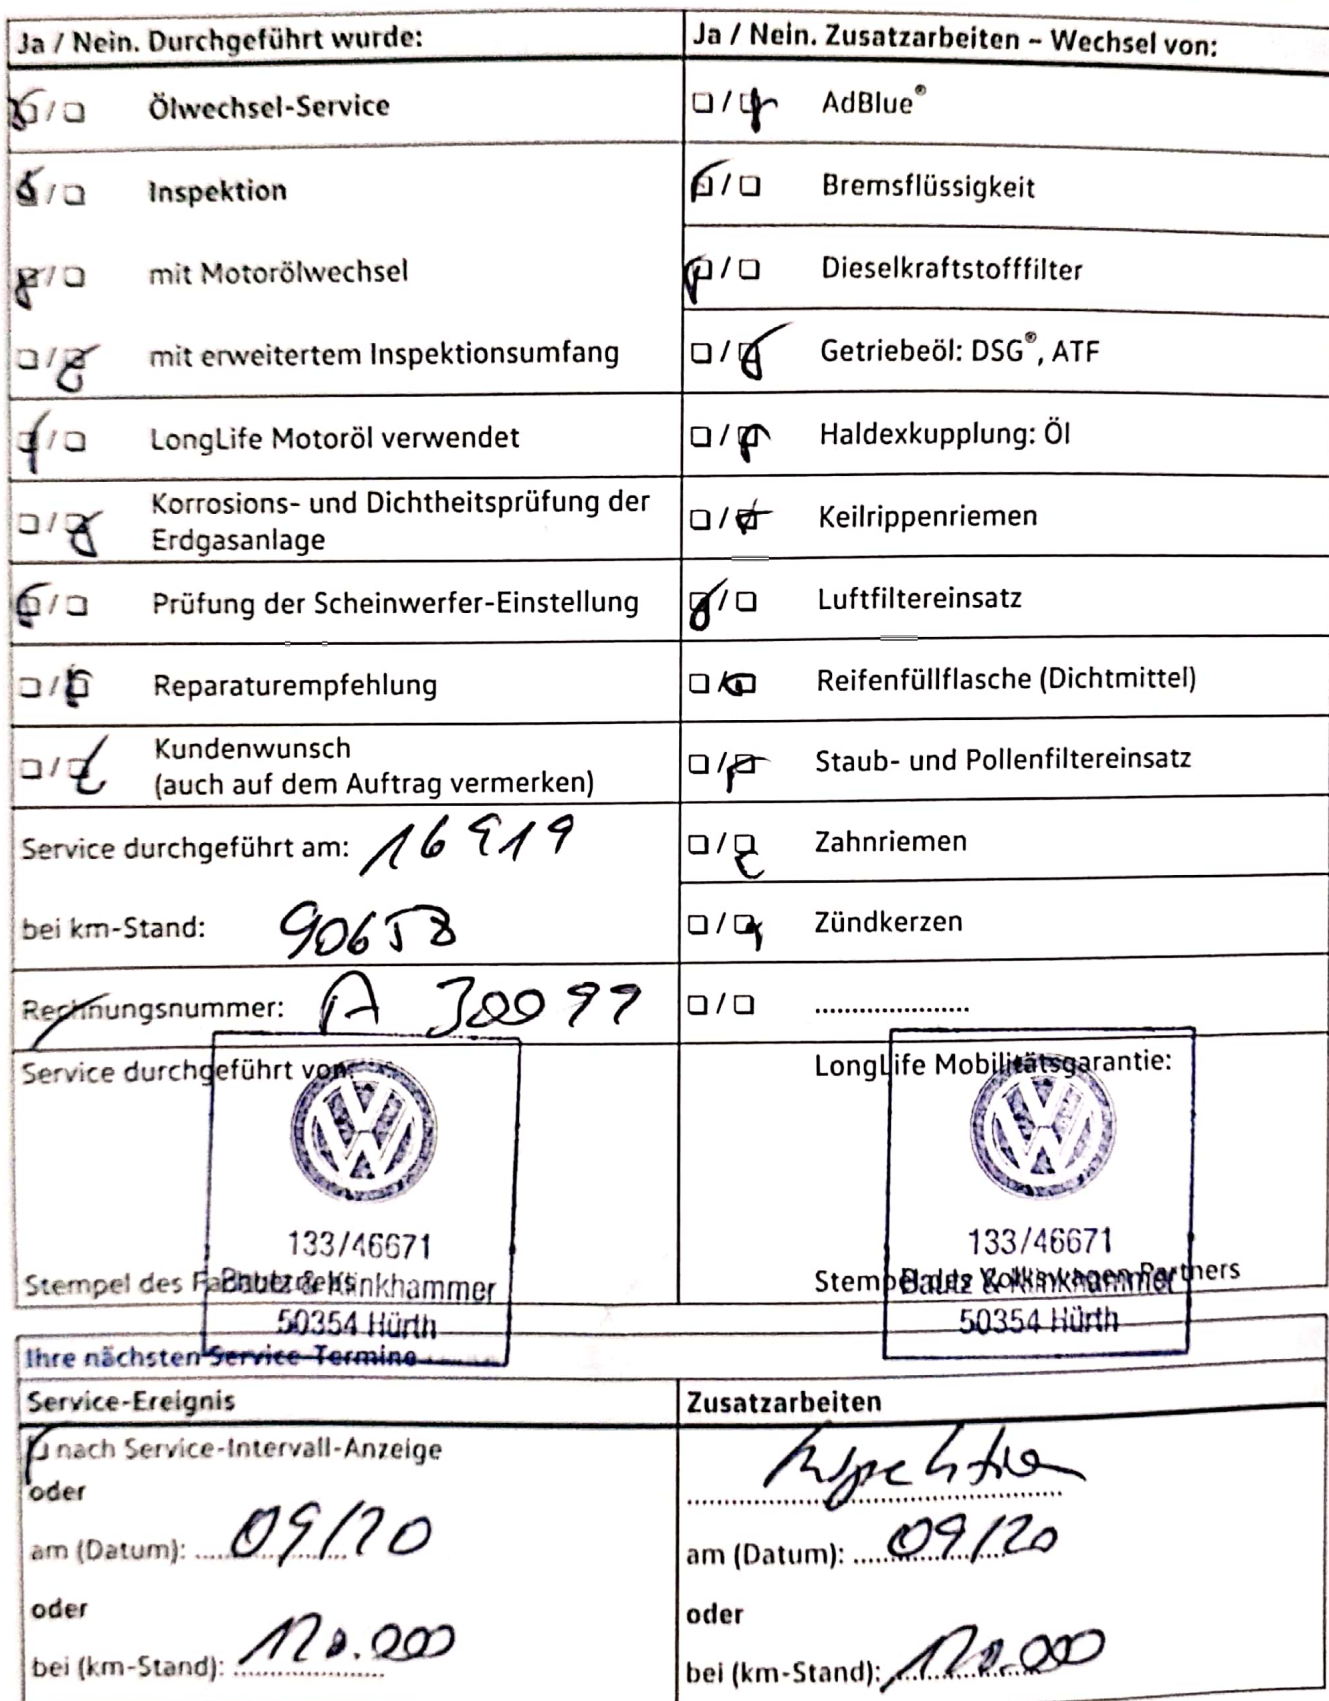 Ja / Nein. Durchgeführt wurde:
☒ / ☐ Ölwechsel-Service
☒ / ☐ Inspektion
☒ / ☐ mit Motorölwechsel
☐ / ☒ mit erweitertem Inspektionsumfang
☒ / ☐ LongLife Motoröl verwendet
☐ / ☒ Korrosions- und Dichtheitsprüfung der
Erdgasanlage
☒ / ☐ Prüfung der Scheinwerfer-Einstellung
☐ / ☒ Reparaturempfehlung
☐ / ☒ Kundenwunsch
(auch auf dem Auftrag vermerken)
Service durchgeführt am: 16 9 19
bei km-Stand: 90658
Rechnungsnummer: A 30099
Service durchgeführt von:
133/46671
Stempel des Fachbetriebs
Bautz & Klinkhammer
50354 Hürth
Ja / Nein. Zusatzarbeiten – Wechsel von:
☐ / ☒ AdBlue®
☒ / ☐ Bremsflüssigkeit
☒ / ☐ Dieselkraftstofffilter
☐ / ☒ Getriebeöl: DSG®, ATF
☐ / ☒ Haldexkupplung: Öl
☐ / ☒ Keilrippenriemen
☒ / ☐ Luftfiltereinsatz
☐ / ☒ Reifenfüllflasche (Dichtmittel)
☐ / ☒ Staub- und Pollenfiltereinsatz
☐ / ☒ Zahnriemen
☐ / ☒ Zündkerzen
☐ / ☐ ......................
LongLife Mobilitätsgarantie:
133/46671
Stempel des Volkswagen Partners
Bautz & Klinkhammer
50354 Hürth
Ihre nächsten Service-Termine
Service-Ereignis
☒ nach Service-Intervall-Anzeige
oder
am (Datum): 09/20
oder
bei (km-Stand): 120.000
Zusatzarbeiten
Inspektion
am (Datum): 09/20
oder
bei (km-Stand): 120.000